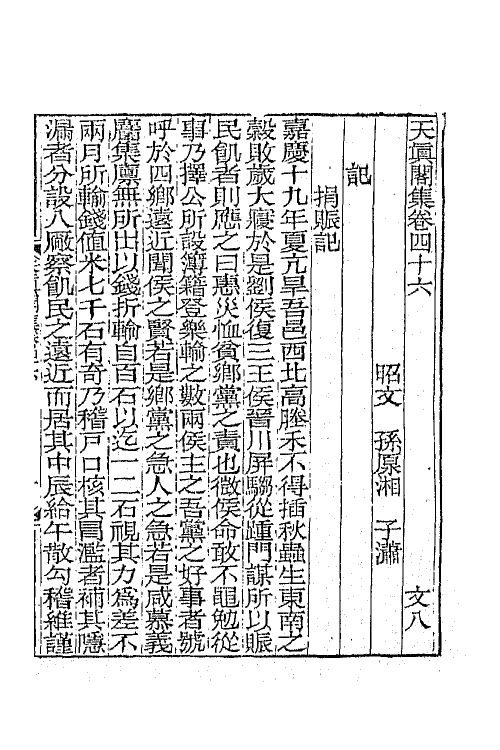 天眞閣集卷四十六
文八
昭文 孫原湘 子瀟
記
捐賑記
嘉慶十九年夏亢旱吾邑西北高塍禾不得插秋蟲生東南之
穀敗歲大寢於是劉侯復三王侯晉川屏騶從踵門謀所以賑
民飢者則應之曰惠災恤貧鄉黨之責也微侯命敢不黽勉從
事乃擇公所設簿籍登樂輸之數兩侯主之吾黨之好事者號
呼於四鄉遠近聞侯之賢若是鄉黨之急人之急若是咸慕義
麕集廪無所出以錢折輸自百石以迄一二石視其力為差不
兩月所輸錢值米七千石有奇乃稽戸口核其冒濫者補其隱
漏者分設八厰察飢民之遠近而居其中辰給午散勾稽維謹